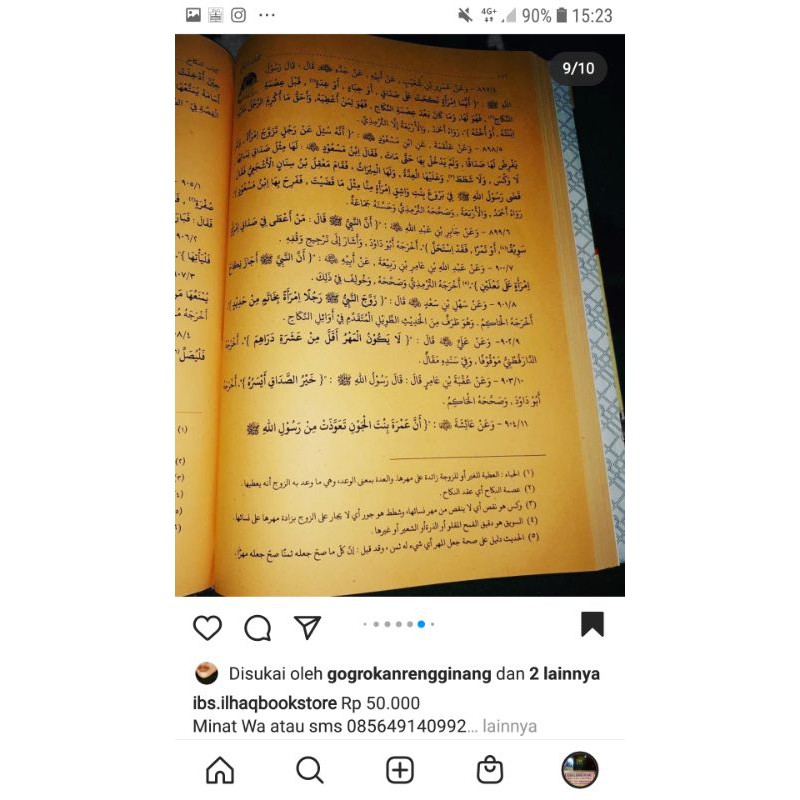 4G+ 90% 15:23
9/10
٨٩٧/٤ - وَعَنْ عَمْرِو بْنِ شُعَيْبٍ ، عَنْ أَبِيْهِ ، عَنْ جَدِّهِ ﷺ قَالَ : قَالَ رَسُوْلُ
اللهِ ﷺ : "{ أَيُّمَا امْرَأَةٍ نَكَحَتْ عَلَى صَدَاقٍ ، أَوْ حِبَاءٍ ، أَوْ عِدَةٍ(١) ، قَبْلَ عِصْمَةِ
النِّكَاحِ(٢)، فَهُوَ لَهَا، وَمَا كَانَ بَعْدَ عِصْمَةِ النِّكَاحِ، فَهُوَ لِمَنْ أُعْطِيَهُ، وَأَحَقُّ مَا أُكْرِمَ الرَّجُلُ عَلَيْهِ
اِبْنَتُهُ ، أَوْ أُخْتُهُ }". رَوَاهُ أَحْمَدُ ، وَالْأَرْبَعَةُ إِلَّا التِّرْمِذِيَّ .
٨٩٨/٥ - وَعَنْ عَلْقَمَةَ ، عَنِ ابْنِ مَسْعُوْدٍ : "{ أَنَّهُ سُئِلَ عَنْ رَجُلٍ تَزَوَّجَ امْرَأَةً ، وَلَمْ
يَفْرِضْ لَهَا صَدَاقًا، وَلَمْ يَدْخُلْ بِهَا حَتَّى مَاتَ ، فَقَالَ اِبْنُ مَسْعُوْدٍ : لَهَا مِثْلُ صَدَاقِ نِسَائِهَا
لَا وَكْسَ ، وَلَا شَطَطَ(٣)، وَعَلَيْهَا الْعِدَّةُ، وَلَهَا الْمِيْرَاثُ، فَقَامَ مَعْقِلُ بْنُ سِنَانٍ الْأَشْجَعِيُّ فَقَالَ
قَضَى رَسُوْلُ اللهِ ﷺ فِيْ بِرْوَعَ بِنْتِ وَاشِقٍ اِمْرَأَةٍ مِنَّا مِثْلَ مَا قَضَيْتَ ، فَفَرِحَ بِهَا اِبْنُ مَسْعُوْدٍ }".
رَوَاهُ أَحْمَدُ ، وَالْأَرْبَعَةُ ، وَصَحَّحَهُ التِّرْمِذِيُّ وَحَسَّنَهُ جَمَاعَةٌ .
٨٩٩/٦ - وَعَنْ جَابِرِ بْنِ عَبْدِ اللهِ : "{ أَنَّ النَّبِيَّ ﷺ قَالَ : مَنْ أَعْطَى فِيْ صَدَاقِ امْرَأَةٍ
سَوِيْقًا(٤)، أَوْ تَمْرًا ، فَقَدْ اِسْتَحَلَّ }". أَخْرَجَهُ أَبُوْ دَاوُدَ ، وَأَشَارَ إِلَى تَرْجِيْحِ وَقْفِهِ .
٩٠٠/٧ - وَعَنْ عَبْدِ اللهِ بْنِ عَامِرِ بْنِ رَبِيْعَةَ ، عَنْ أَبِيْهِ : "{ أَنَّ النَّبِيَّ ﷺ أَجَازَ نِكَاحَ
اِمْرَأَةٍ عَلَى نَعْلَيْنِ }".(٥) أَخْرَجَهُ التِّرْمِذِيُّ وَصَحَّحَهُ ، وَخُوْلِفَ فِيْ ذٰلِكَ .
٩٠١/٨ - وَعَنْ سَهْلِ بْنِ سَعْدٍ قَالَ : "{ زَوَّجَ النَّبِيُّ ﷺ رَجُلًا اِمْرَأَةً بِخَاتَمٍ مِنْ حَدِيْدٍ }".
أَخْرَجَهُ الْحَاكِمُ . وَهُوَ طَرَفٌ مِنَ الْحَدِيْثِ الطَّوِيْلِ الْمُتَقَدِّمِ فِيْ أَوَائِلِ النِّكَاحِ .
٩٠٢/٩ - وَعَنْ عَلِيٍّ قَالَ : "{ لَا يَكُوْنُ الْمَهْرُ أَقَلَّ مِنْ عَشَرَةِ دَرَاهِمَ }". أَخْرَجَهُ
الدَّارَقُطْنِيُّ مَوْقُوْفًا ، وَفِيْ سَنَدِهِ مَقَالٌ .
٩٠٣/١٠ - وَعَنْ عُقْبَةَ بْنِ عَامِرٍ قَالَ : قَالَ رَسُوْلُ اللهِ ﷺ : "{ خَيْرُ الصَّدَاقِ أَيْسَرُهُ }". أَخْرَجَهُ
أَبُوْ دَاوُدَ ، وَصَحَّحَهُ الْحَاكِمُ .
٩٠٤/١١ - وَعَنْ عَائِشَةَ : "{ أَنَّ عَمْرَةَ بِنْتَ الْجَوْنِ تَعَوَّذَتْ مِنْ رَسُوْلِ اللهِ ﷺ
(١) الحباء : العطية للغير أو للزوجة زائدة على مهرها. والعدة بمعنى الوعد، وهي ما وعد به الزوج أنه يعطيها .
(٢) عصمة النكاح أي عقد النكاح .
(٣) وكس هو نقص أي لا ينقص من مهر نسائها، وشطط هو جور أي لا يجار على الزوج بزيادة مهرها على نسائها .
(٤) السويق هو دقيق القمح المقلو أو الذرة أو الشعير أو غيرها .
(٥) الحديث دليل على صحة جعل المهر أي شيء له ثمن ، وقد قيل : إنّ كلّ ما صحّ جعله ثمنًا صحّ جعله مهرًا .
٩٠٥/١
فَقَالَ : فَبَارَ
٩٠٦/٢
فَلْيَأْتِهَا }".
٩٠٧/٣
(١)
(٢)
(٣)
(٤)
(٥)
Disukai oleh gogrokanrengginang dan 2 lainnya
ibs.ilhaqbookstore Rp 50.000
Minat Wa atau sms 085649140992... lainnya